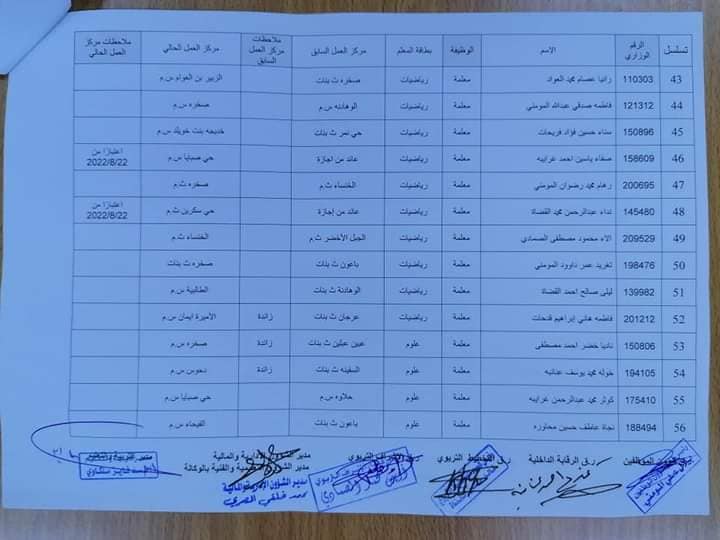 تسلسل الرقم الوزاري الاسم الوظيفة بطاقة المعلم مركز العمل السابق ملاحظات مركز العمل السابق مركز العمل الحالي ملاحظات مركز العمل الحالي
43 110303 رانيا عصام محمد العواد معلمة رياضيات صخره ث بنات الزبير بن العوام س.م
44 121312 فاطمه صدقي عبدالله المومني معلمة رياضيات الوهادنه س.م صخره س.م
45 150896 سناء حسين فؤاد فريحات معلمة رياضيات حي نمر ث بنات خديجه بنت خويلد س.م
46 158609 صفاء ياسين احمد غرايبه معلمة رياضيات عائد من اجازة حي صبايا س.م اعتبارًا من 2022/8/22
47 200695 رهام محمد رضوان المومني معلمة رياضيات الخنساء ث.م صخره ث.م
48 145480 نداء عبدالرحمن محمد القضاة معلمة رياضيات عائد من إجازة حي سكرين ث.م اعتبارًا من 2022/8/22
49 209529 الاء محمود مصطفى الصمادي معلمة رياضيات الجبل الأخضر ث.م الخنساء ث.م
50 198476 تغريد عمر داوود المومني معلمة رياضيات باعون ث بنات صخره ث بنات
51 139982 ليلى صالح احمد القضاة معلمة رياضيات الوهادنة ث بنات الطالبية س.م
52 201212 فاطمه هاني إبراهيم قدحات معلمة رياضيات عرجان ث بنات زائدة الأميرة ايمان س.م
53 150806 ناديا خضر احمد مصطفى معلمة علوم عبين عبلين ث بنات زائدة صخره س.م
54 194105 خوله محمد يوسف عنانبه معلمة علوم السفينه ث بنات زائدة دحوس س.م
55 175410 كوثر محمد عبدالرحمن غرايبه معلمة علوم حلاوه س.م حي صبايا س.م
56 188494 نجاة عاطف حسين محاوره معلمة علوم باعون ث بنات الفيحاء س.م
ر.ق الرقابة الداخلية التربوي مدير الشؤون الإدارية والمالية
مدير الشؤون والفنية بالوكالة
مدير الشؤون الإدارية والمالية